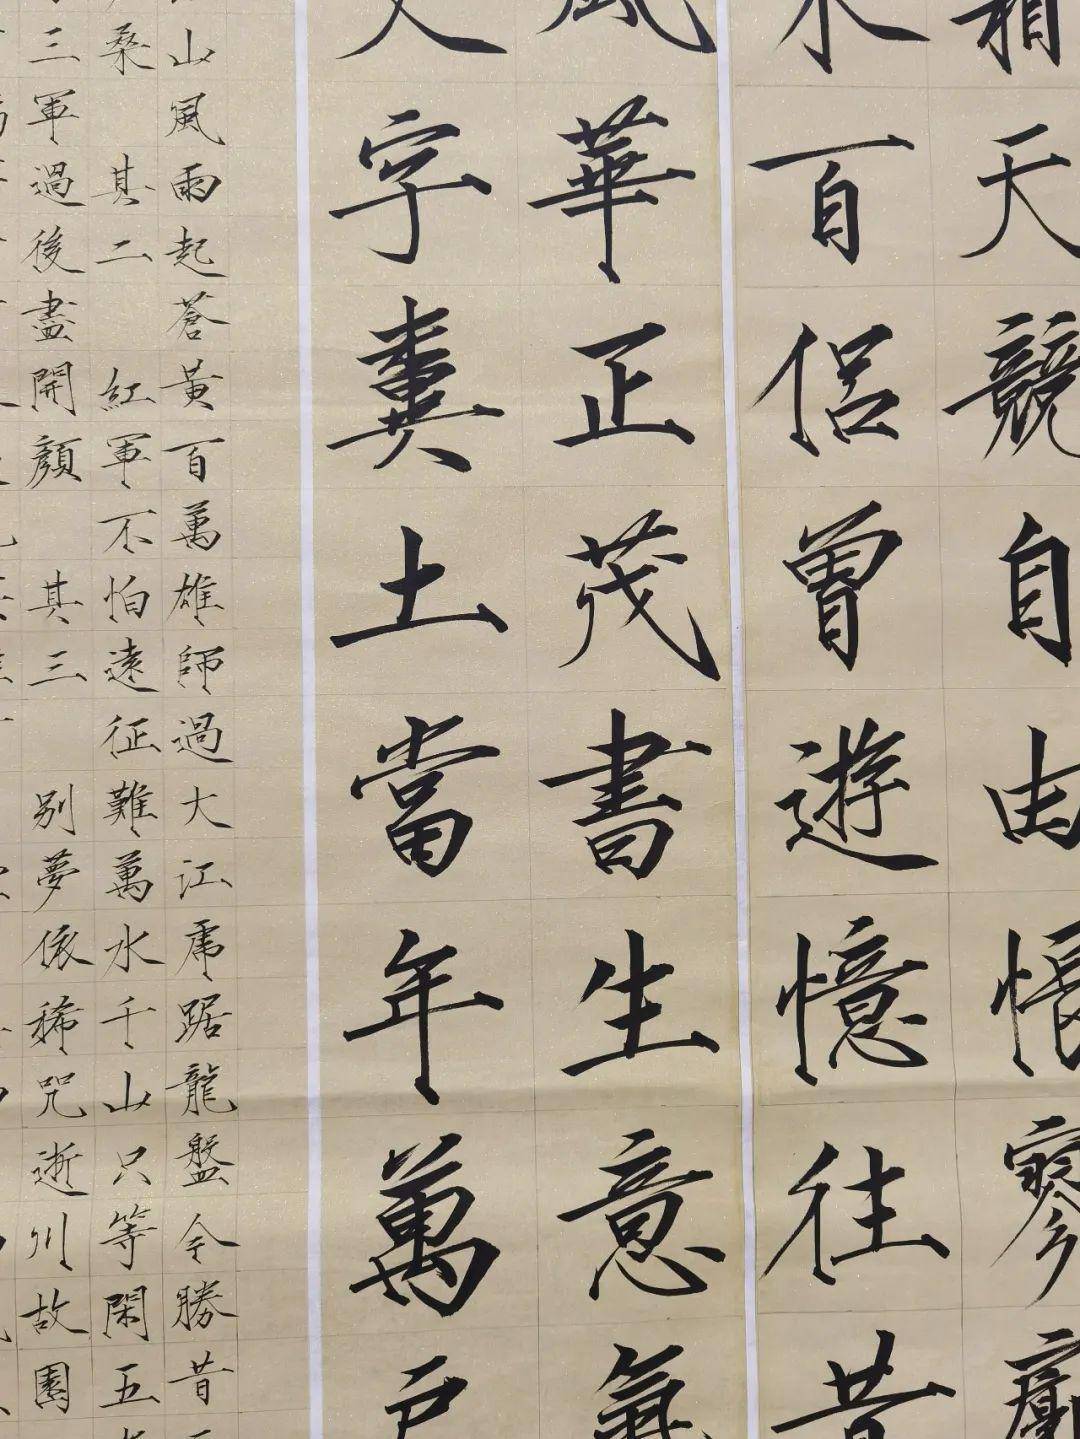 霜天競自由悵寥廓
百侣曾遊憶往昔
風華正茂書生意氣
文字糞土當年萬户
山風雨起蒼黃百萬雄師過大江虎踞龍盤今勝昔
桑 其二 紅軍不怕遠征難萬水千山只等閑五
三軍過後盡開顏 其三 别夢依稀咒逝川故園